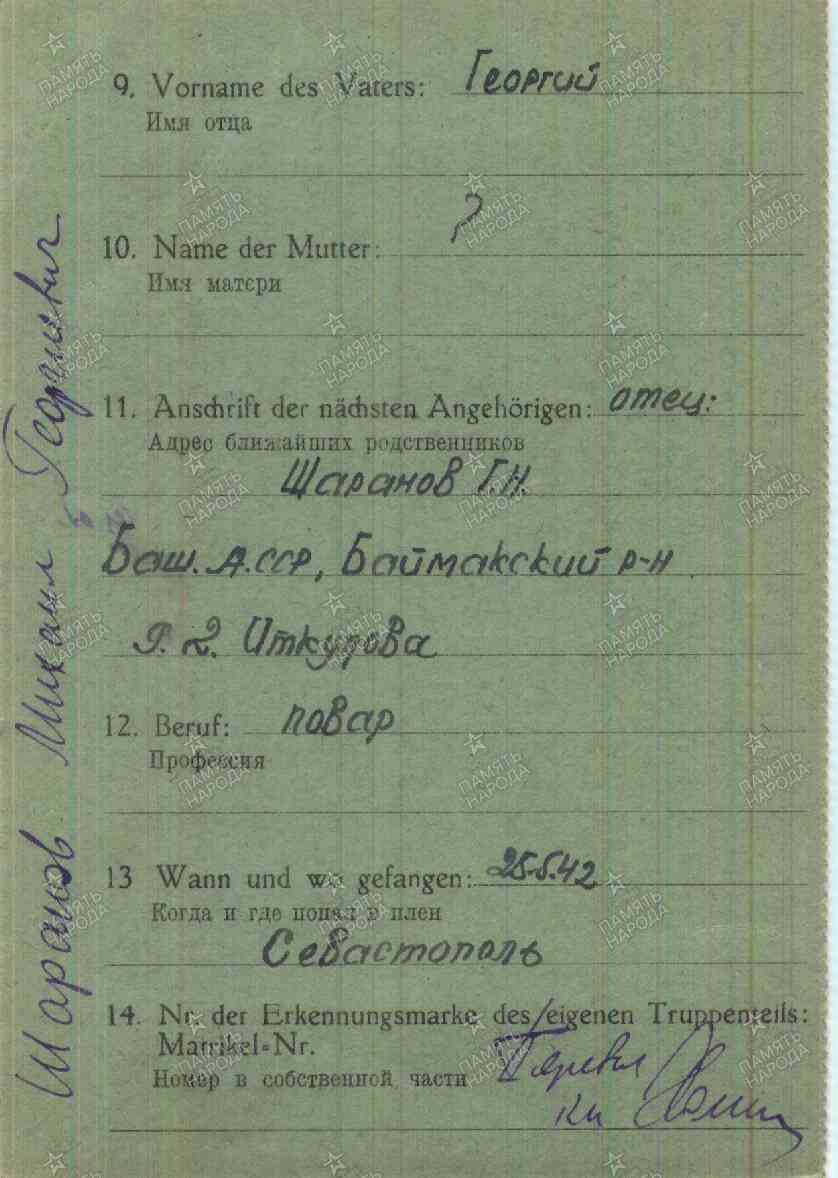 9. Vorname des Vaters: Георгий
Имя отца
10. Name der Mutter: ?
Имя матери
11. Anschrift der nächsten Angehörigen: отец:
Адрес ближайших родственников
Шаранов Г.Н.
Баш. А.ССР, Баймакский р-н
Иткулова
12. Beruf: повар
Профессия
13 Wann und wo gefangen: 25.5.42
Когда и где попал в плен
Севастополь
14. Nr. der Erkennungsmarke des/eigenen Truppenteils:
Matrikel=Nr.
Номер в собственной части
Шаранов Михаил Георгиевич
ПАМЯТЬ НАРОДА